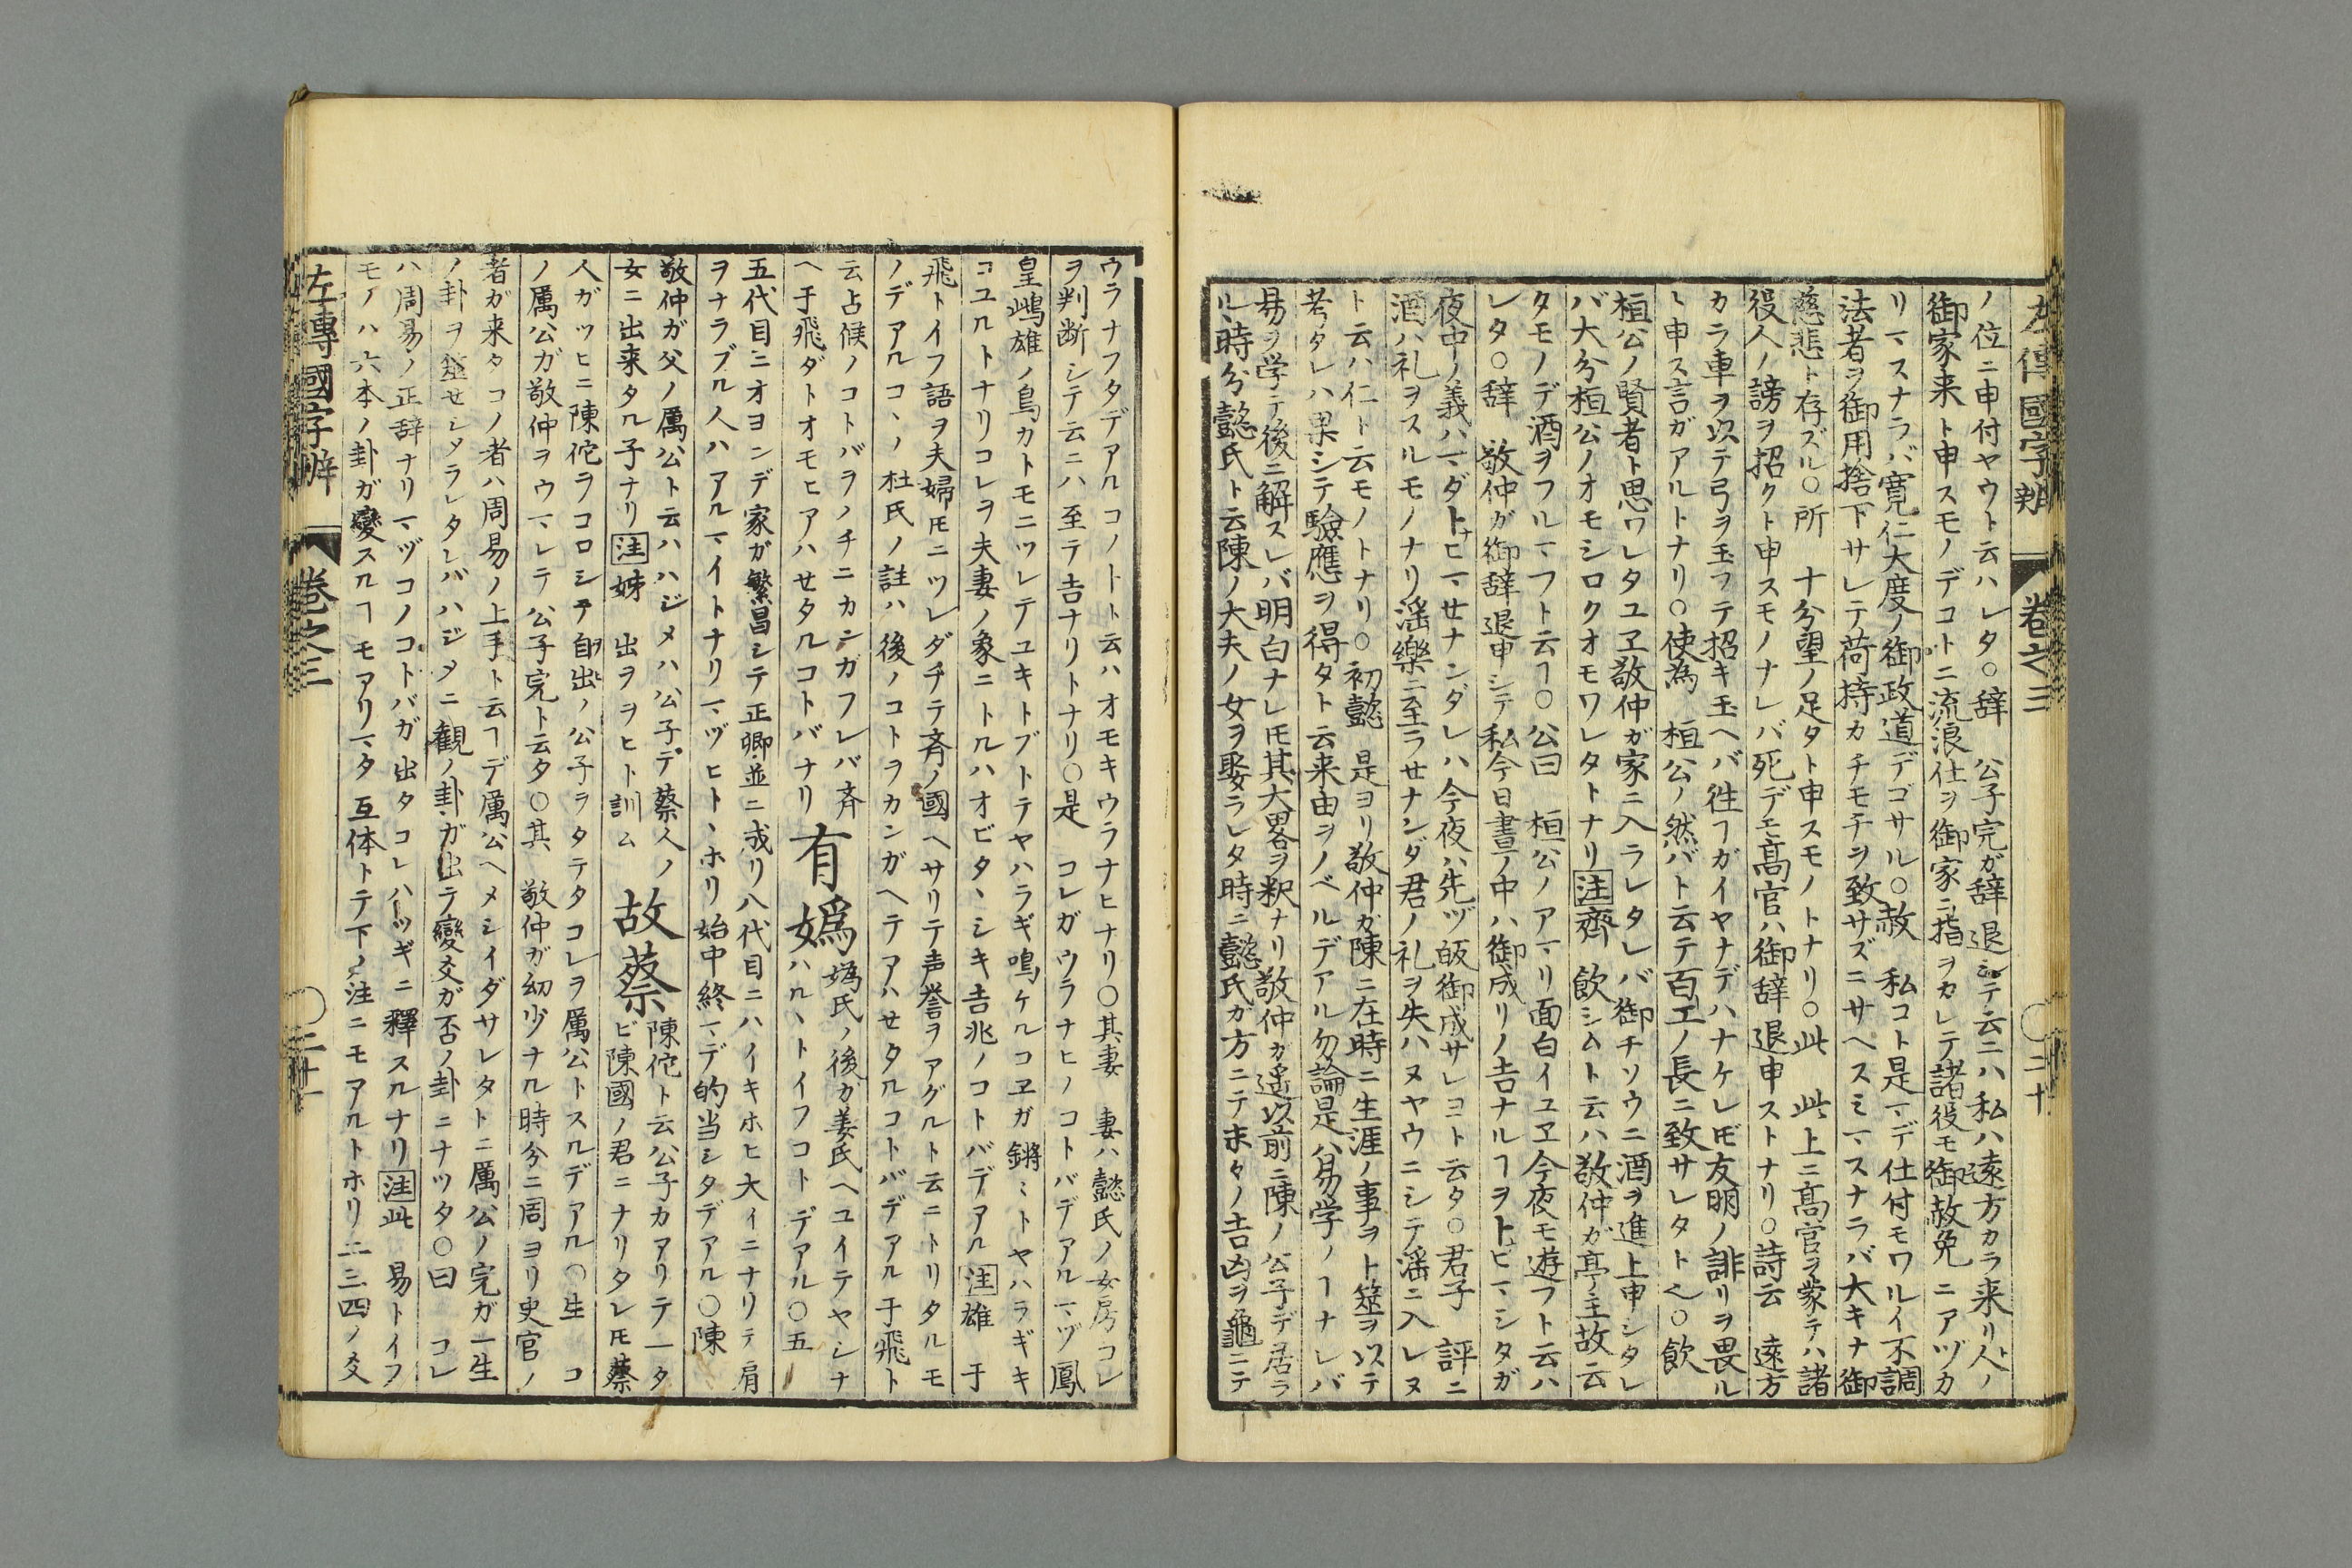 左傳國字辨 卷之三 〇二十
ノ位ニ申付ヤウト云ハレタ○辞 公子完ガ辞退シテ云ニハ私ハ遠方カラ来リ人ノ
御家来ト申スモノデコトニ流浪仕ヲ御家ニ指ヲカレテ諸役モ御赦免ニアヅカ
リマスナラバ寛仁大度ノ御政道デゴサル○赦 私コト是マデ仕付モワルイ不調
法者ヲ御用捨下サレテ荷持カチモチヲ致サズニサヘスミマスナラバ大キナ御
慈悲ト存ズル○所 十分望ノ足タト申スモノトナリ○此 此上ニ高官ヲ蒙テハ諸
役人ノ謗ヲ招クト申スモノナレバ死デエ高官ハ御辞退申ストナリ○詩云 遠方
カラ車ヲ以テ弓ヲ玉フテ招キ玉ヘバ徃ヿガイヤナデハナケレドモ友朋ノ誹リヲ畏ル
ヽ申ス言ガアルトナリ○使為 桓公ノ然バト云テ百工ノ長ニ致サレタト也○飲
桓公ノ賢者ト思ワレタユヱ敬仲ガ家ニ入ラレタレバ御チソウニ酒ヲ進上申シタレ
バ大分桓公ノオモシロクオモワレタトナリ注齊 飲シムト云ハ敬仲ガ亭主故云
タモノデ酒ヲフルマフト云ヿ○公曰 桓公ノアマリ面白イユヱ今夜モ遊フト云ハ
レタ○辞 敬仲ガ御辞退申シテ私今日晝ノ中ハ御成リノ吉ナルヿヲトヒマシタガ
夜中ノ義ハマダトヒマセナンダレハ今夜ハ先ヅ皈御成サレヨト云タ○君子 評ニ
酒ハ礼ヲスルモノナリ淫樂ニ至ラセナンダ君ノ礼ヲ失ハヌヤウニシテ淫ニ入レヌ
ト云ハ仁ト云モノトナリ○初懿 是ヨリ敬仲ガ陳ニ在時ニ生涯ノ事ヲト筮ヲ以テ
考タレハ果シテ驗應ヲ得タト云来由ヲノベルデアル勿論是ハ易学ノヿナレバ
易ヲ学テ後ニ解スレバ明白ナレ𪜈其大畧ヲ釈ナリ敬仲ガ遥以前ニ陳ノ公子デ居ラ
ルヽ時分懿氏ト云陳ノ大夫ノ女ヲ娶ラレタ時ニ懿氏ガ方ニテ末々ノ吉凶ヲ龜ニテ
ウラナフタデアルコノトト云ハオモキウラナヒナリ○其妻 妻ハ懿氏ノ女房コレ
ヲ判断シテ云ニハ至テ吉ナリトナリ○是 コレガウラナヒノコトバデアルマヅ鳳
皇鴫雄ノ鳥カトモニツレテユキトブトテヤハラギ鳴ケルコヱガ鏘ミトヤハラギキ
コユルトナリコレヲ夫妻ノ象ニトルハオビタヽシキ吉兆ノコトバデアル注雄 于
飛トイフ語ヲ夫婦𪜈ニツレダチテ斉ノ國ヘサリテ声誉ヲアグルト云ニトリタルモ
ノデアルコヽノ杜氏ノ註ハ後ノコトヲカンガヘテアハセタルコトバデアル于飛ト
云占候ノコトバヲノチニカンガフレバ斉
ヘ于飛ダトオモヒアハセタルコトバナリ 有嬀 嬀氏ノ後ガ姜氏ヘユイテヤシナ
ハルヽトイフコトデアル○五
五代目ニオヨンデ家ガ繁昌シテ正卿並ニ成リ八代目ニハイキホヒ大イニナリテ肩
ヲナラブル人ハアルマイトナリマヅヒトヽホリ始中終マデ的当シタデアル○陳
敬仲ガ父ノ厲公ト云ハハジメハ公子デ蔡人ノ
女ニ出来タル子ナリ注姊 出ヲヲヒト訓ム 故蔡 陳佗ト云公子カアリテ一タ
ビ陳國ノ君ニナリタレ𪜈蔡
人ガツヒニ陳佗ヲコロシテ自出ノ公子ヲタテタコレヲ厲公トスルデアル○生 コ
ノ厲公ガ敬仲ヲウマレテ公子完ト云タ○其 敬仲ガ幼少ナル時分ニ周ヨリ史官ノ
者ガ来タコノ者ハ周易ノ上手ト云ヿデ厲公ヘメシイダサレタトニ厲公ノ完ガ一生
ノ卦ヲ筮セシメラレタレバハジメニ観ノ卦ガ出テ變爻ガ否ノ卦ニナツタ○曰 コレ
ハ周易ノ正辞ナリマヅコノコトバガ出タコレハツギニ釋スルナリ注此 易トイフ
モノハ六本ノ卦ガ變スルヿモアリマタ互体トテ下ノ注ニモアルトホリ二三四ノ爻
左傳國字辨 卷之三 〇二十一